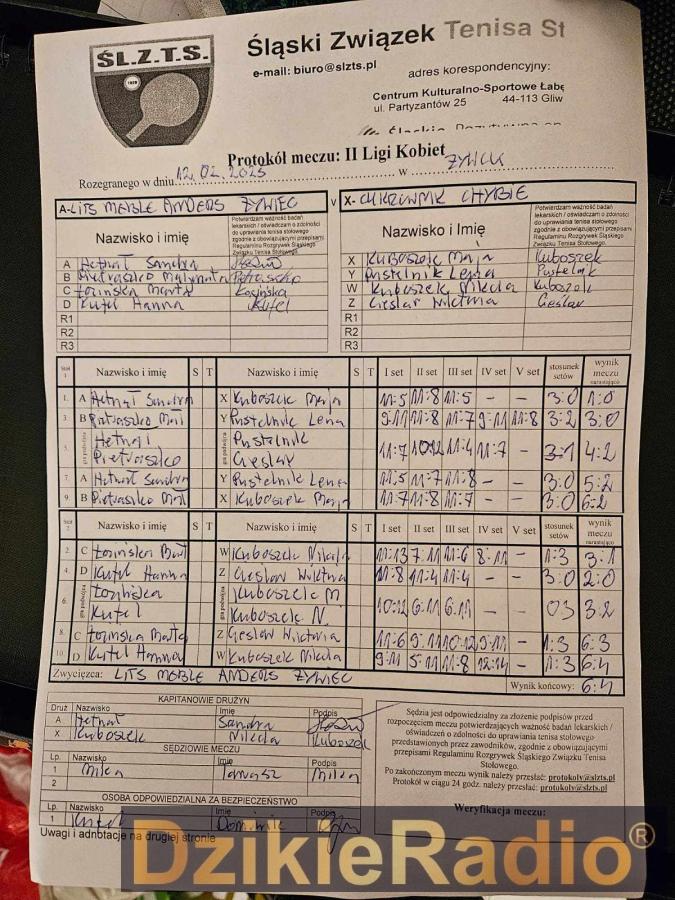 ŚL.Z.T.S.
Śląski Związek Tenisa St
e-mail: biuro@slzts.pl
adres korespondencyjny:
Centrum Kulturalno-Sportowe Łabę
ul. Partyzantów 25 44-113 Gliw
Protokół meczu: II Ligi Kobiet
Rozegranego w dniu 12.02.2025 w ŻYWCU
A- LITS MEBLE ANDERS ŻYWIEC v X- CUKROWNIK CHYBIE
Nazwisko i imię Potwierdzam ważność badań lekarskich / oświadczam o zdolności do uprawiania tenisa stołowego zgodnie z obowiązującymi przepisami Regulaminu Rozgrywek Śląskiego Związku Tenisa Stołowego.
Nazwisko i imię Potwierdzam ważność badań lekarskich / oświadczam o zdolności do uprawiania tenisa stołowego zgodnie z obowiązującymi przepisami Regulaminu Rozgrywek Śląskiego Związku Tenisa Stołowego.
A Hetnał Sandra X Kuboszek Maja Kuboszek
B Pietraszko Małgorzata Pietraszko Y Pustelnik Lena Pustelnik
C Łozińska Marta Łozińska W Kuboszek Nikola Kuboszek
D Kufel Hanna Kufel Z Cieślar Wiktoria Cieślar
R1 R1
R2 R2
R3 R3
Stół 1 Nazwisko i imię S T Nazwisko i imię S T I set II set III set IV set V set stosunek setów wynik meczu narastająco
1. A Hetnał Sandra X Kuboszek Maja 11:5 11:8 11:5 - - 3:0 1:0
3. B Pietraszko Mał Y Pustelnik Lena 9:11 11:8 11:7 9:11 11:8 3:2 3:0
5. gra podwójna Hetnał Pustelnik
Pietraszko Cieślar 11:7 10:12 11:4 11:7 - 3:1 4:2
7. A Hetnał Sandra Y Pustelnik Lena 11:5 11:7 11:8 - - 3:0 5:2
9. B Pietraszko Mał X Kuboszek Maja 11:7 11:8 11:7 - - 3:0 6:2
Stół 2 Nazwisko i imię S T Nazwisko i imię S T I set II set III set IV set V set stosunek setów wynik meczu narastająco
2. C Łozińska W Kuboszek Nikola 11:13 7:11 11:6 8:11 - 1:3 3:1
4. D Kufel Hanna Z Cieślar Wiktoria 11:8 11:4 11:4 - - 3:0 2:0
6. gra podwójna Łozińska Kuboszek M
Kufel Kuboszek N. 10:12 6:11 6:11 - - 0:3 3:2
8. C Łozińska Marta Z Cieślar Wiktoria 11:6 9:11 10:12 9:11 - 1:3 6:3
10. D Kufel Hanna W Kuboszek Nikola 9:11 5:11 11:8 12:14 - 1:3 6:4
Zwycięzca: LITS MEBLE ANDERS ŻYWIEC Wynik końcowy: 6:4
KAPITANOWIE DRUŻYN
Druż Nazwisko Imię Podpis
A Hetnał Sandra
X Kuboszek Nikola Kuboszek
SĘDZIOWIE MECZU
Lp. Nazwisko Imię Podpis
1 Milka Tomasz Milka
2
OSOBA ODPOWIEDZIALNA ZA BEZPIECZEŃSTWO
Lp. Nazwisko Imię Podpis
1 Dominik
Uwagi i adnotacje na drugiej stronie
Sędzia jest odpowiedzialny za złożenie podpisów przed
rozpoczęciem meczu potwierdzających ważność badań lekarskich /
oświadczeń o zdolności do uprawiania tenisa stołowego
przedstawionych przez zawodników, zgodnie z obowiązującymi
przepisami Regulaminu Rozgrywek Śląskiego Związku Tenisa
Stołowego.
Po zakończonym meczu wynik należy przesłać: protokoly@slzts.pl
Protokół w ciągu 24 godz. należy przesłać: protokoly@slzts.pl
Weryfikacja meczu:
DzikieRadio®